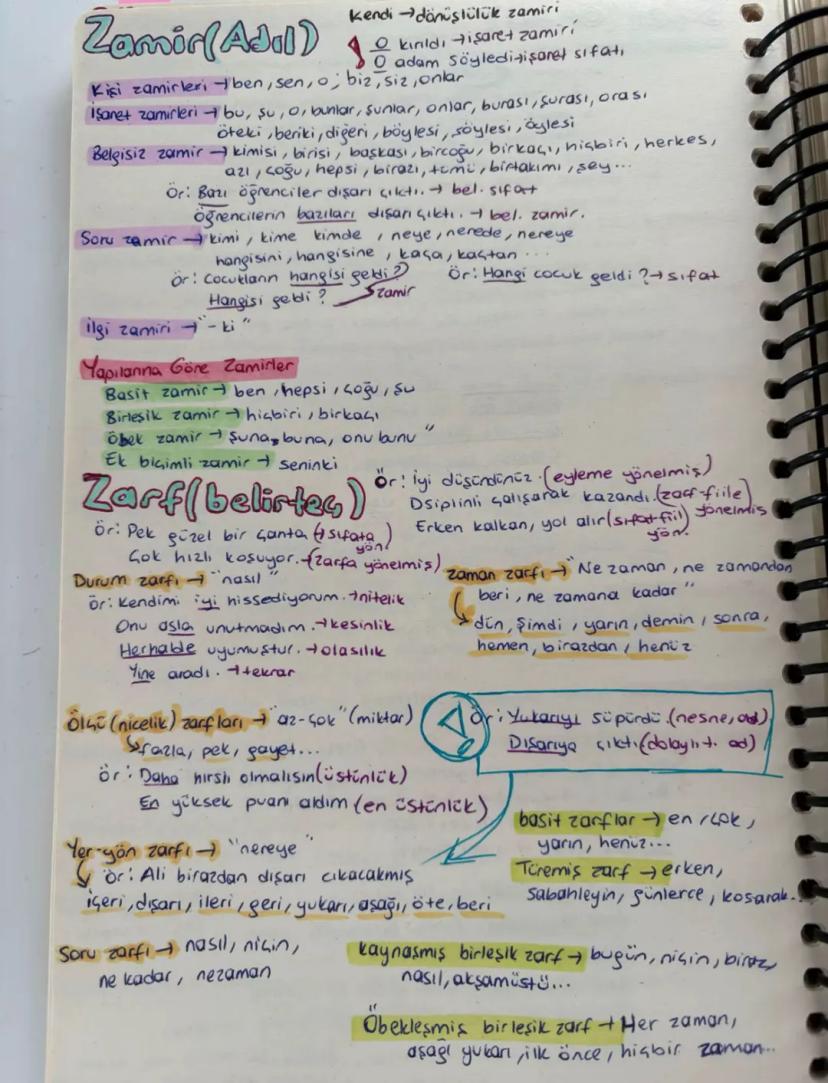 Zamir(Adıl)
Kendi → dönüşlülük zamiri
O kırıldı → işaret zamiri
O adam söyledi → işaret sıfatı
Kişi zamirleri → ben, sen, o, biz, siz, onlar
İşaret zamirleri → bu, şu, o, bunlar, şunlar, onlar, burası, şurası, orası
öteki, beriki, diğeri, böylesi, şöylesi, öylesi
Belgisiz zamir → kimisi, birisi, başkası, birçoğu, birkaçı, hiçbiri, herkes,
azı, çoğu, hepsi, birazı, tümü, birtakımı, şey...
Ör: Bazı öğrenciler dışarı çıktı. → bel. sıfat
Öğrencilerin bazıları dışarı çıktı. → bel. zamir.
Soru zamir → kimi, kime kimde, neye, nerede, nereye
hangisini, hangisine, kaça, kaçtan ...
Ör: Çocukların hangisi geldi?
Hangisi geldi? zamir
Ör: Hangi çocuk geldi? → sıfat
İlgi zamiri → "-ki"
Yapılarına Göre Zamirler
Basit zamir → ben, hepsi, çoğu, şu
Birleşik zamir → hiçbiri, birkaçı
Öbek zamir → şuna, buna, onu bunu"
Ek biçimli zamir → seninki
Zarf(belirteç)
Ör: Pek güzel bir çanta (→ sıfata yön)
Çok hızlı koşuyor. → (zarfa yönelmiş)
Ör: İyi düşündünüz. (eyleme yönelmiş)
Dsiplinli çalışarak kazandı. (zarf-fiile) yönelmiş
Erken kalkan, yol alır (sıfat fiil) yön.
Durum zarfı → "nasıl"
Ör: Kendimi iyi hissediyorum. → nitelik
Onu asla unutmadım. → kesinlik
Herhalde uyumuştur. → olasılık
Yine aradı. → tekrar
zaman zarfı → "Ne zaman, ne zamandan
beri, ne zamana kadar"
dün, şimdi, yarın, demin, sonra,
hemen, birazdan, henüz
Ölçü (nicelik) zarfları → "az-çok" (miktar)
fazla, pek, gayet...
Ör: Daha hırslı olmalısın (üstünlük)
En yüksek puanı aldım (en üstünlük)
Ör: Yukarıyı süpürdü. (nesne, ad)
Dışarıya çıktı. (dolaylı t. ad)
Yer-yön zarfı → "nereye"
Ör: Ali birazdan dışarı çıkacakmış
içeri, dışarı, ileri, geri, yukarı, aşağı, öte, beri
Soru zarfı → nasıl, niçin,
ne kadar, nezaman
basit zarflar → en, çok,
yarın, henüz...
Türemiş zarf → erken,
sabahleyin, günlerce, koşarak...
kaynaşmış birleşik zarf → bugün, niçin, biraz,
nasıl, akşamüstü...
Öbekleşmiş birleşik zarf → Her zaman,
aşağı yukarı, ilk önce, hiçbir zaman...